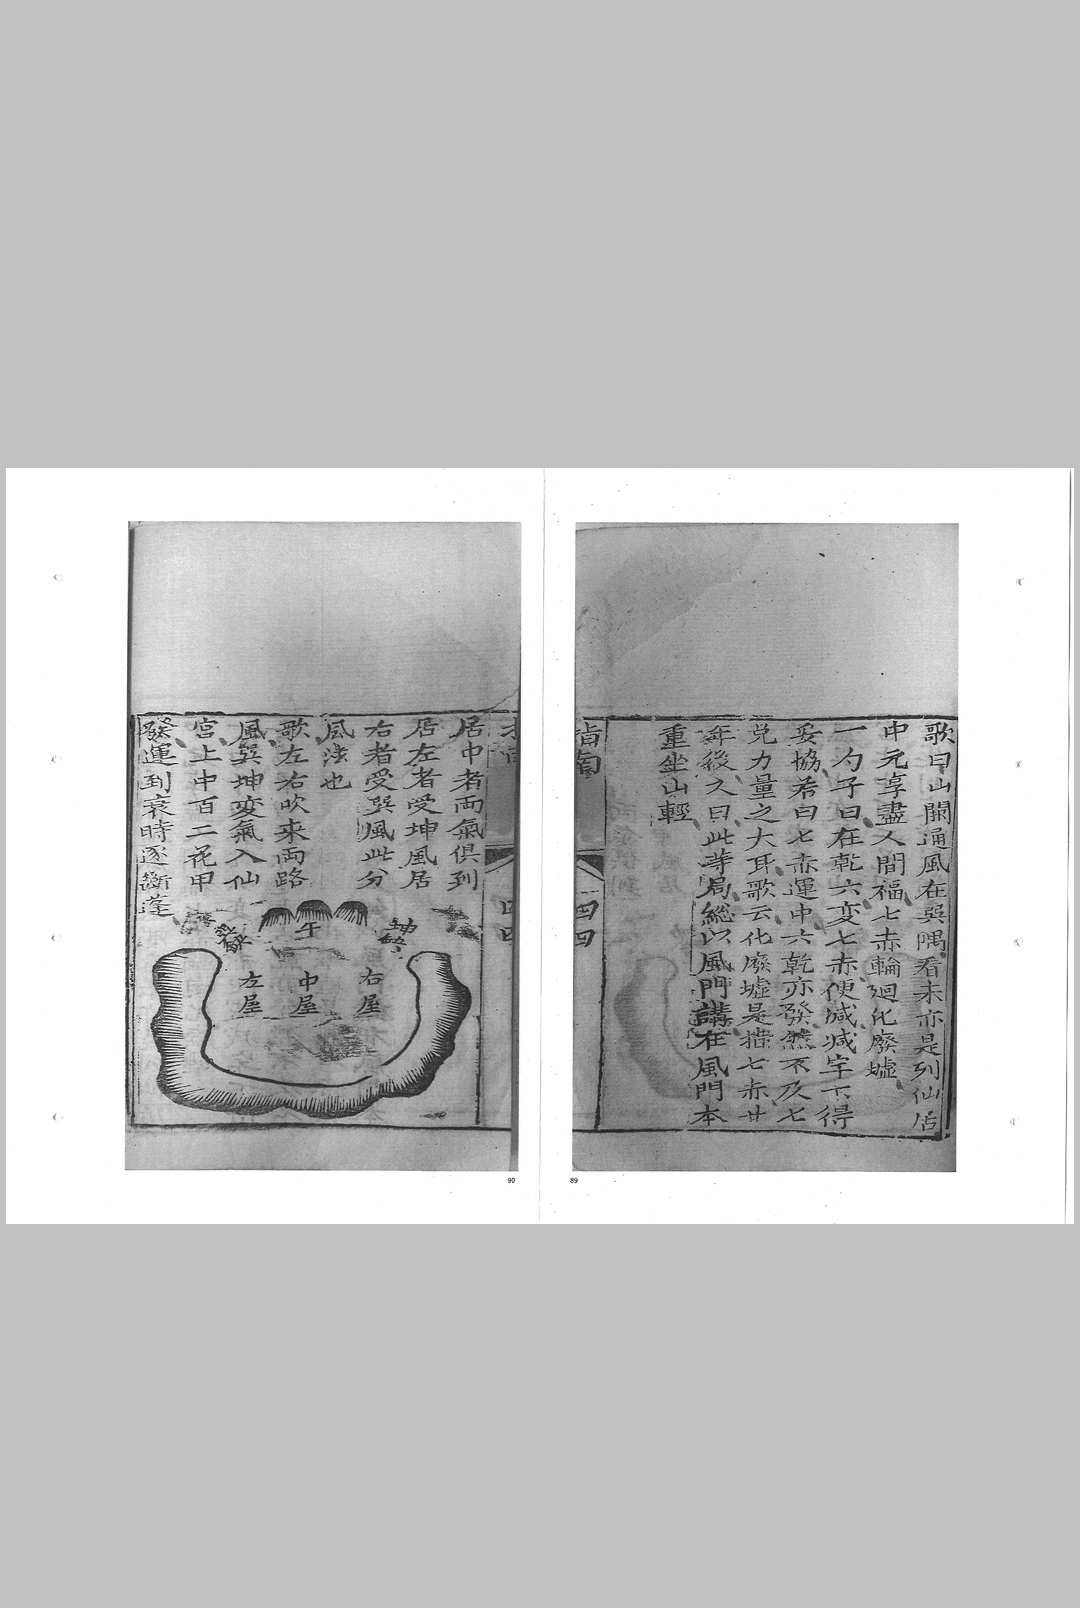 歌曰山關通風在巽隅看未亦是列仙居
中元享盡人間福七赤輪廻化廢墟
一勺子曰在乾六変七赤便減減字下得
妥協若曰七赤運中六乾亦發然不及七
兌力量之大耳歌云化廢墟是揸七赤廿
年後又曰此等局総以風門講在風門本
重坐山輕
指南
四四
89
居中者兩氣俱到
居左者受坤風居
右者受巽風此分
風法也
歌左右吹来両路
風巽坤変氣入仙
宮上中百二花甲
發運到衰時逐斷蓬
午
坤缺
左屋
中屋
右屋
90